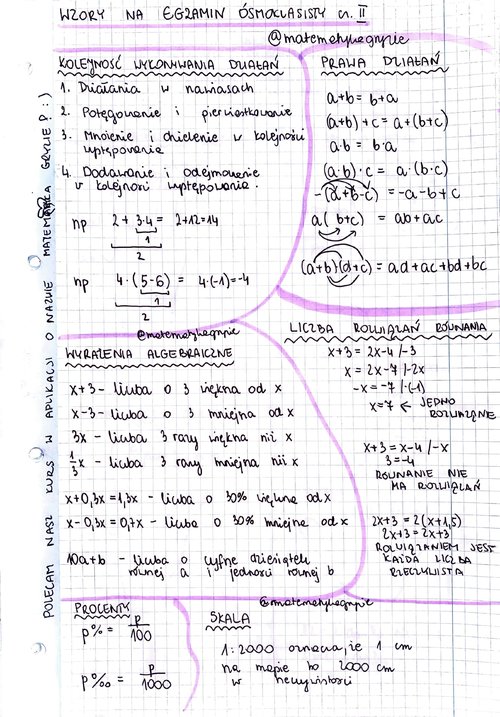 WZORY NA EGZAMIN ÓSMOKLASISTY cz. II
@matematykagryzie
KOLEJNOŚĆ WYKONYWANIA DZIAŁAŃ
1. Działania w nawiasach
2. Potęgowanie i pierwiastkowanie
3. Mnożenie i dzielenie w kolejności
występowania
4. Dodawanie i odejmowanie
w kolejności występowania.
np 2 + 3·4 = 2+12=14
1
2
np 4·(5-6) = 4·(-1)=-4
1
2
PRAWA DZIAŁAŃ
a+b = b+a
(a+b)+c = a+(b+c)
a·b = b·a
(a·b)·c = a·(b·c)
-(a+b-c) = -a-b+c
a(b+c) = ab+ac
(a+b)(d+c) = ad+ac+bd+bc
@matematykagryzie
WYRAŻENIA ALGEBRAICZNE
x+3 - liczba o 3 większa od x
x-3 - liczba o 3 mniejsza od x
3x - liczba 3 razy większa niż x
1/3x - liczba 3 razy mniejsza niż x
x+0,3x=1,3x - liczba o 30% większa od x
x-0,3x=0,7x - liczba o 30% mniejsza od x
10a+b - liczba o cyfrze dziesiątek
równej a i jedności równej b
LICZBA ROZWIĄZAŃ RÓWNANIA
x+3 = 2x-4 /-3
x = 2x-7 /-2x
-x = -7 /·(-1)
x=7 ← JEDNO
ROZWIĄZANIE
x+3 = x-4 /-x
3=-4
RÓWNANIE NIE
MA ROZWIĄZAŃ
2x+3 = 2(x+1,5)
2x+3 = 2x+3
ROZWIĄZANIEM JEST
KAŻDA LICZBA
RZECZYWISTA
PROCENTY
p% = p/100
p‰ = p/1000
@matematykagryzie
SKALA
1:2000 oznacza, że 1 cm
na mapie to 2000 cm
w rzeczywistości
POLECAM NASZ KURS W APLIKACJI O NAZWIE MATEMATYKA GRYZIE ? :)